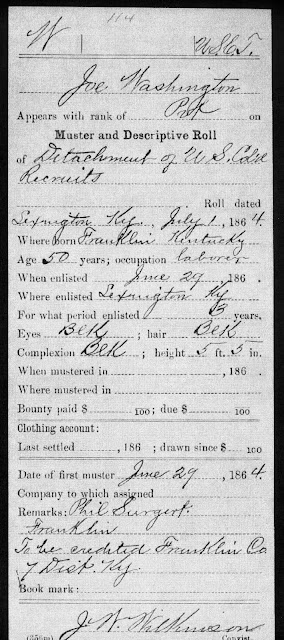 114
W | U.S.C.T.
Joe Washington
Appears with rank of Pvt on
Muster and Descriptive Roll
of Detachment of U.S. Cold
Recruits
Roll dated
Lexington Ky. July 1, 1864.
Where born Franklin Kentucky
Age 50 years; occupation laborer
When enlisted June 29, 186 .
Where enlisted Lexington Ky
For what period enlisted 3 years.
Eyes Blk ; hair Blk
Complexion Blk ; height 5 ft. 3 in.
When mustered in , 186 .
Where mustered in
Bounty paid $ 100; due $ 100
Clothing account:
Last settled , 186 ; drawn since $ 100
Date of first muster June 29, 1864.
Company to which assigned
Remarks: Phil Surgert.
Franklin
To be credited Franklin Co
7 Dist. Ky.
Book mark:
J. W. Wilkinson
(356m) Copyist.